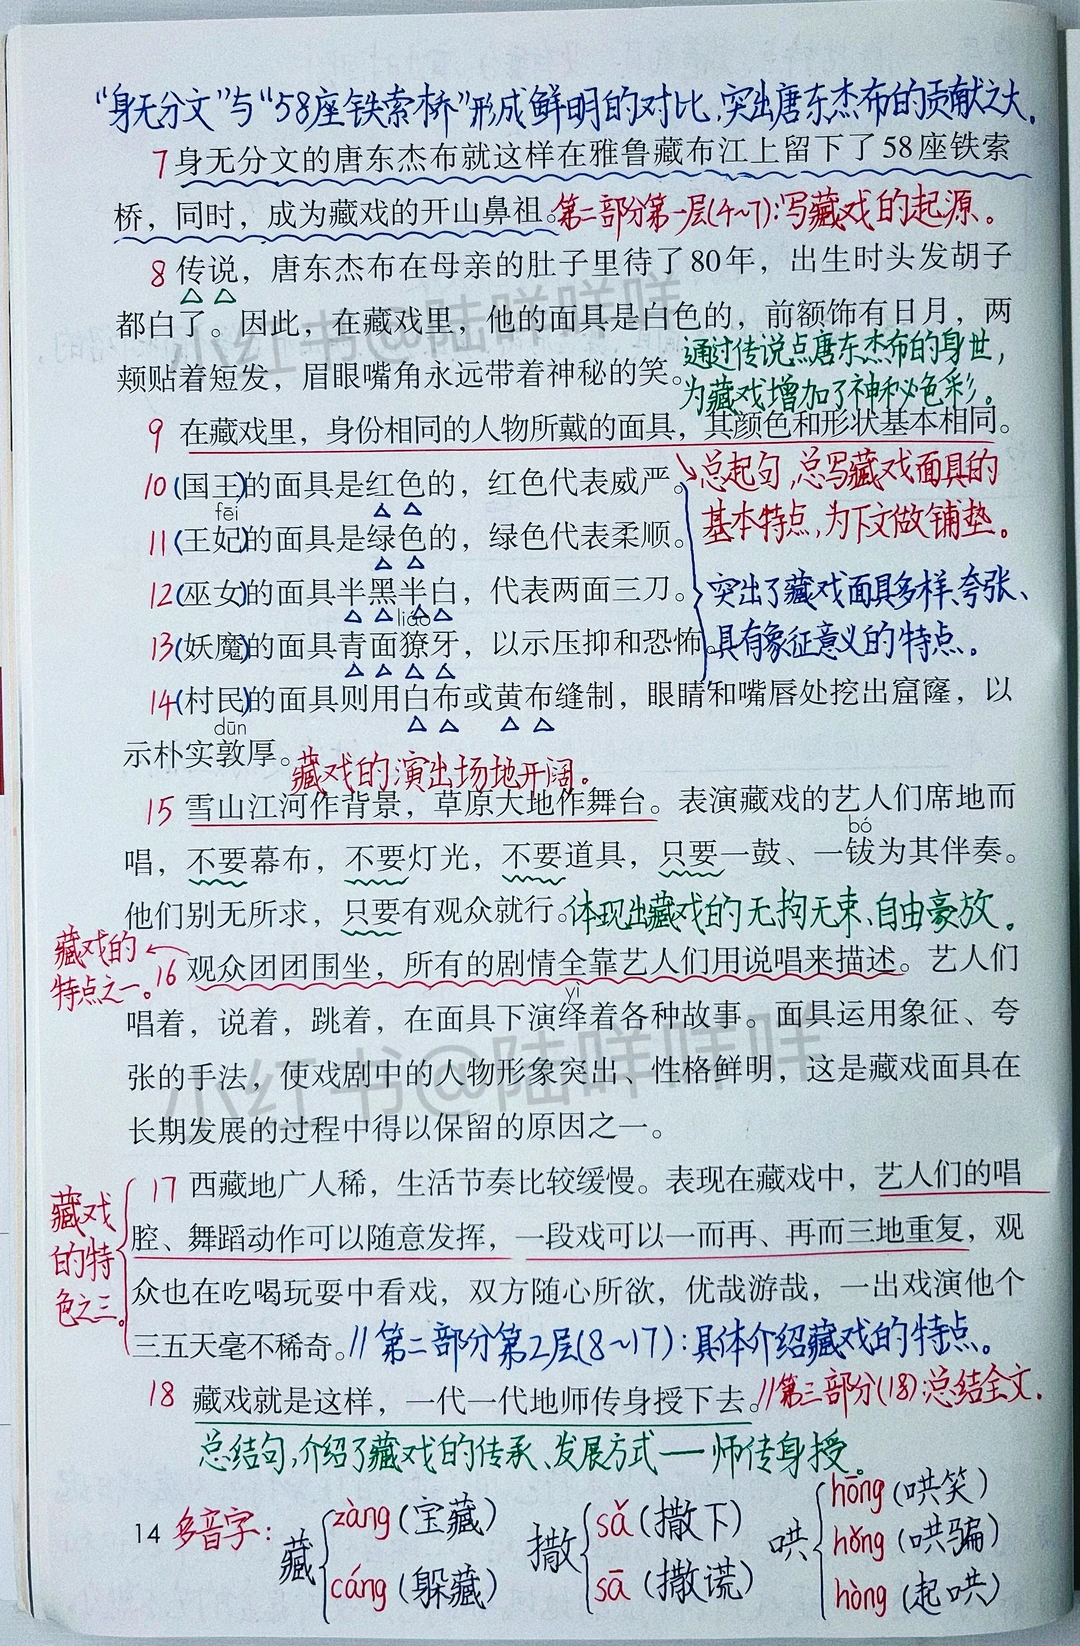 “身无分文”与“58座铁索桥”形成鲜明的对比,突出唐东杰布的贡献之大.
7 身无分文的唐东杰布就这样在雅鲁藏布江上留下了58座铁索
桥，同时，成为藏戏的开山鼻祖。第二部分第一层(4~7):写藏戏的起源。
8 传说，唐东杰布在母亲的肚子里待了80年，出生时头发胡子
都白了。因此，在藏戏里，他的面具是白色的，前额饰有日月，两
小红书@陆咩咩咩
通过传说点唐东杰布的身世,
颊贴着短发，眉眼嘴角永远带着神秘的笑。
为藏戏增加了神秘色彩。
9 在藏戏里，身份相同的人物所戴的面具，其颜色和形状基本相同。
10(国王)的面具是红色的，红色代表威严。
总起句,总写藏戏面具的
基本特点,为下文做铺垫。
fēi
11(王妃)的面具是绿色的，绿色代表柔顺。
12(巫女)的面具半黑半白，代表两面三刀。
突出了藏戏面具多样、夸张、
liáo
13(妖魔)的面具青面獠牙，以示压抑和恐怖。
具有象征意义的特点。
14(村民)的面具则用白布或黄布缝制，眼睛和嘴唇处挖出窟窿，以
dūn
示朴实敦厚。
藏戏的演出场地开阔。
15 雪山江河作背景，草原大地作舞台。表演藏戏的艺人们席地而
bó
唱，不要幕布，不要灯光，不要道具，只要一鼓、一钹为其伴奏。
他们别无所求，只要有观众就行。体现出藏戏的无拘无束、自由豪放。
藏戏的
特点之一。
16 观众团团围坐，所有的剧情全靠艺人们用说唱来描述。艺人们
yì
唱着，说着，跳着，在面具下演绎着各种故事。面具运用象征、夸
小红书@陆咩咩咩
张的手法，使戏剧中的人物形象突出、性格鲜明，这是藏戏面具在
长期发展的过程中得以保留的原因之一。
藏戏
的特
色之三。
17 西藏地广人稀，生活节奏比较缓慢。表现在藏戏中，艺人们的唱
腔、舞蹈动作可以随意发挥，一段戏可以一而再、再而三地重复，观
众也在吃喝玩耍中看戏，双方随心所欲，优哉游哉，一出戏演他个
三五天毫不稀奇。//第二部分第2层(8~17):具体介绍藏戏的特点。
18 藏戏就是这样，一代一代地师传身授下去。//第三部分(18):总结全文.
总结句,介绍了藏戏的传承、发展方式——师传身授。
14
多音字:
藏
zàng(宝藏)
cáng(躲藏)
撒
sǎ(撒下)
sā(撒谎)
哄
hōng(哄笑)
hǒng(哄骗)
hòng(起哄)